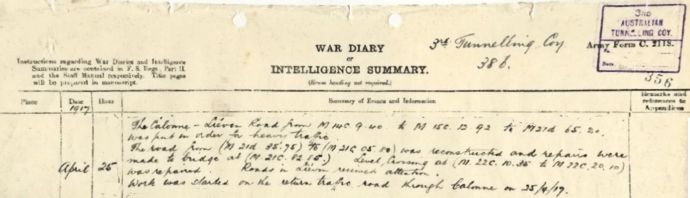 3RD
AUSTRALIAN
TUNNELLING COY.
Date
WAR DIARY
or
INTELLIGENCE SUMMARY.
(Erase heading not required.)
3rd Tunnelling Coy
386.
Army Form C. 2118.
356
Instructions regarding War Diaries and Intelligence
Summaries are contained in F. S. Regs., Part II.
and the Staff Manual respectively. Title pages
will be prepared in manuscript.
Place
Date
Hour
Summary of Events and Information
Remarks and
references to
Appendices
1917
The Calonne - Liéven Road from M14C 9.40 to M15C.12 92 to M21d 65.20.
was put in order for heavy trafic.
The road from (M21d 35.75) to (M21C 05.80) was reconstructed and repairs were
made to bridge at (M.21C. 82.85). Level Crossing at (M.22C.10.35 to M22C.20.10)
April 25 was repaired. Roads in Liéven received attention.
Work was started on the return trafic road through Calonne on 25/4/17.